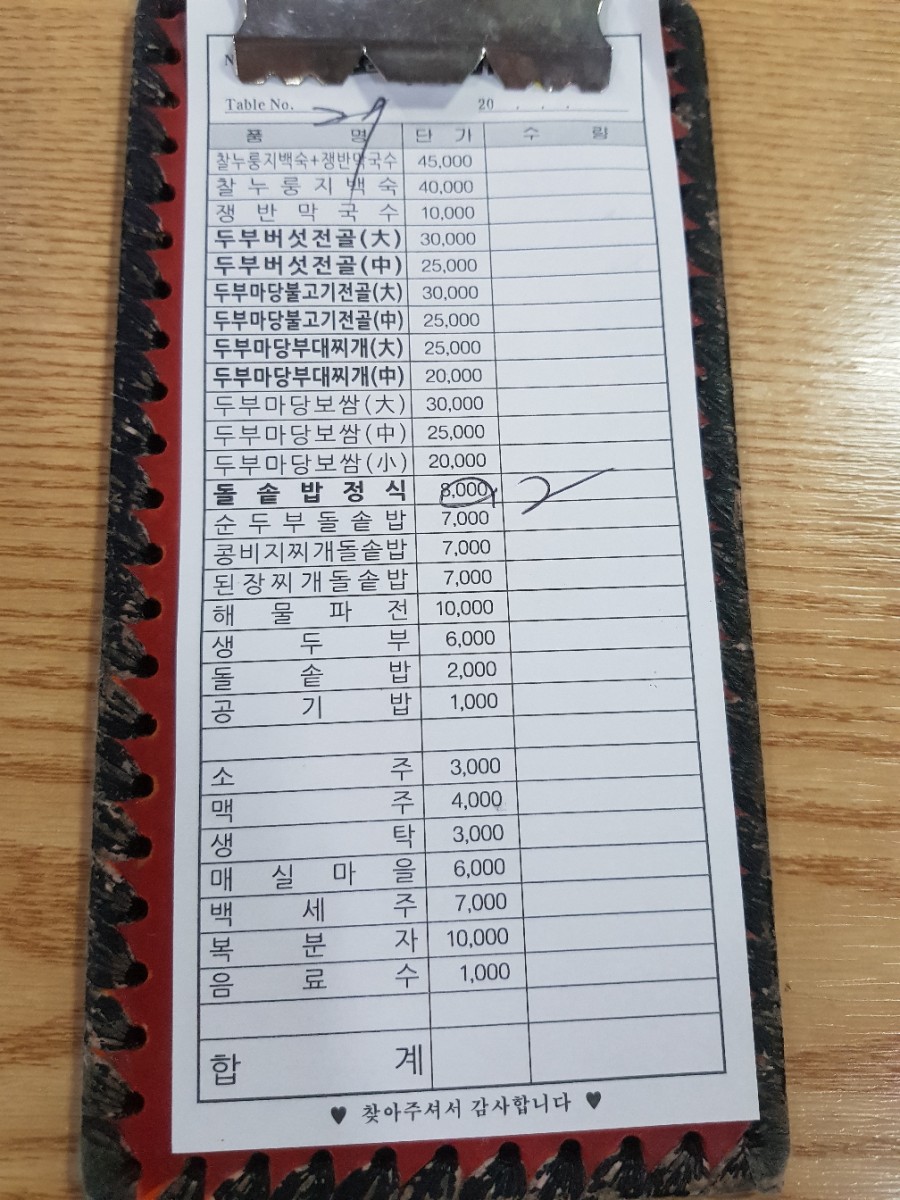 Table No. 29 20 . . .
품 명 단 가 수 량
찰누룽지백숙+쟁반막국수 45,000
찰누룽지백숙 40,000
쟁반막국수 10,000
두부버섯전골(大) 30,000
두부버섯전골(中) 25,000
두부마당불고기전골(大) 30,000
두부마당불고기전골(中) 25,000
두부마당부대찌개(大) 25,000
두부마당부대찌개(中) 20,000
두부마당보쌈(大) 30,000
두부마당보쌈(中) 25,000
두부마당보쌈(小) 20,000
돌솥밥정식 8,000 2
순두부돌솥밥 7,000
콩비지찌개돌솥밥 7,000
된장찌개돌솥밥 7,000
해물파전 10,000
생두부 6,000
돌솥밥 2,000
공기밥 1,000
소주 3,000
맥주 4,000
생탁 3,000
매실마을 6,000
백세주 7,000
복분자 10,000
음료수 1,000
합계
♥ 찾아주셔서 감사합니다 ♥